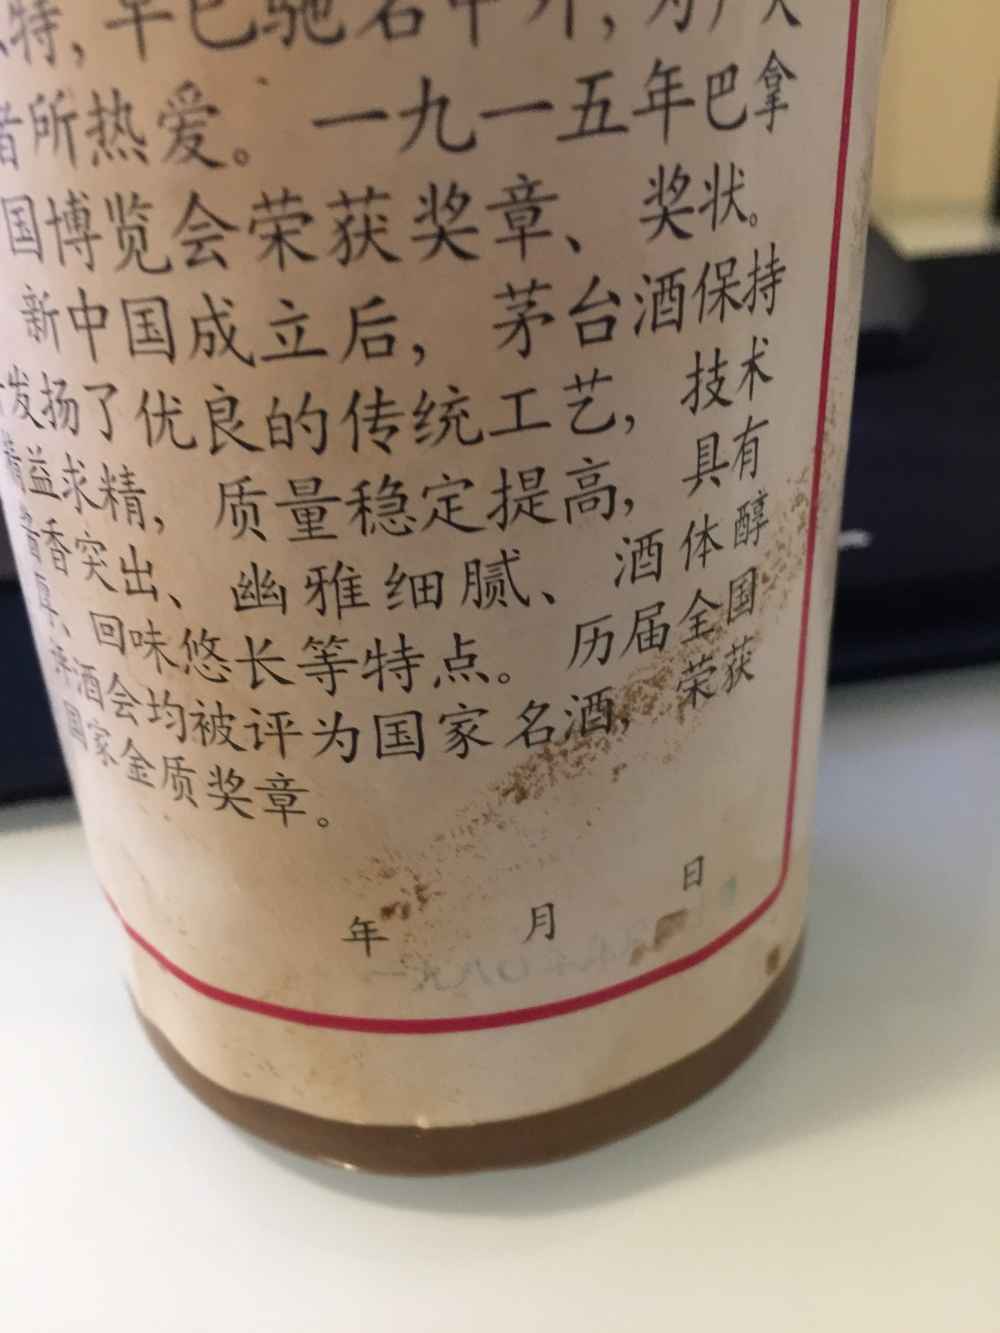 特，早已驰名中外，为广大
者所热爱。一九一五年巴拿
国博览会荣获奖章、奖状。
新中国成立后，茅台酒保持
发扬了优良的传统工艺，技术
精益求精，质量稳定提高，具有
酱香突出、幽雅细腻、酒体醇
厚、回味悠长等特点。历届全国
评酒会均被评为国家名酒，荣获
国家金质奖章。
年 月 日